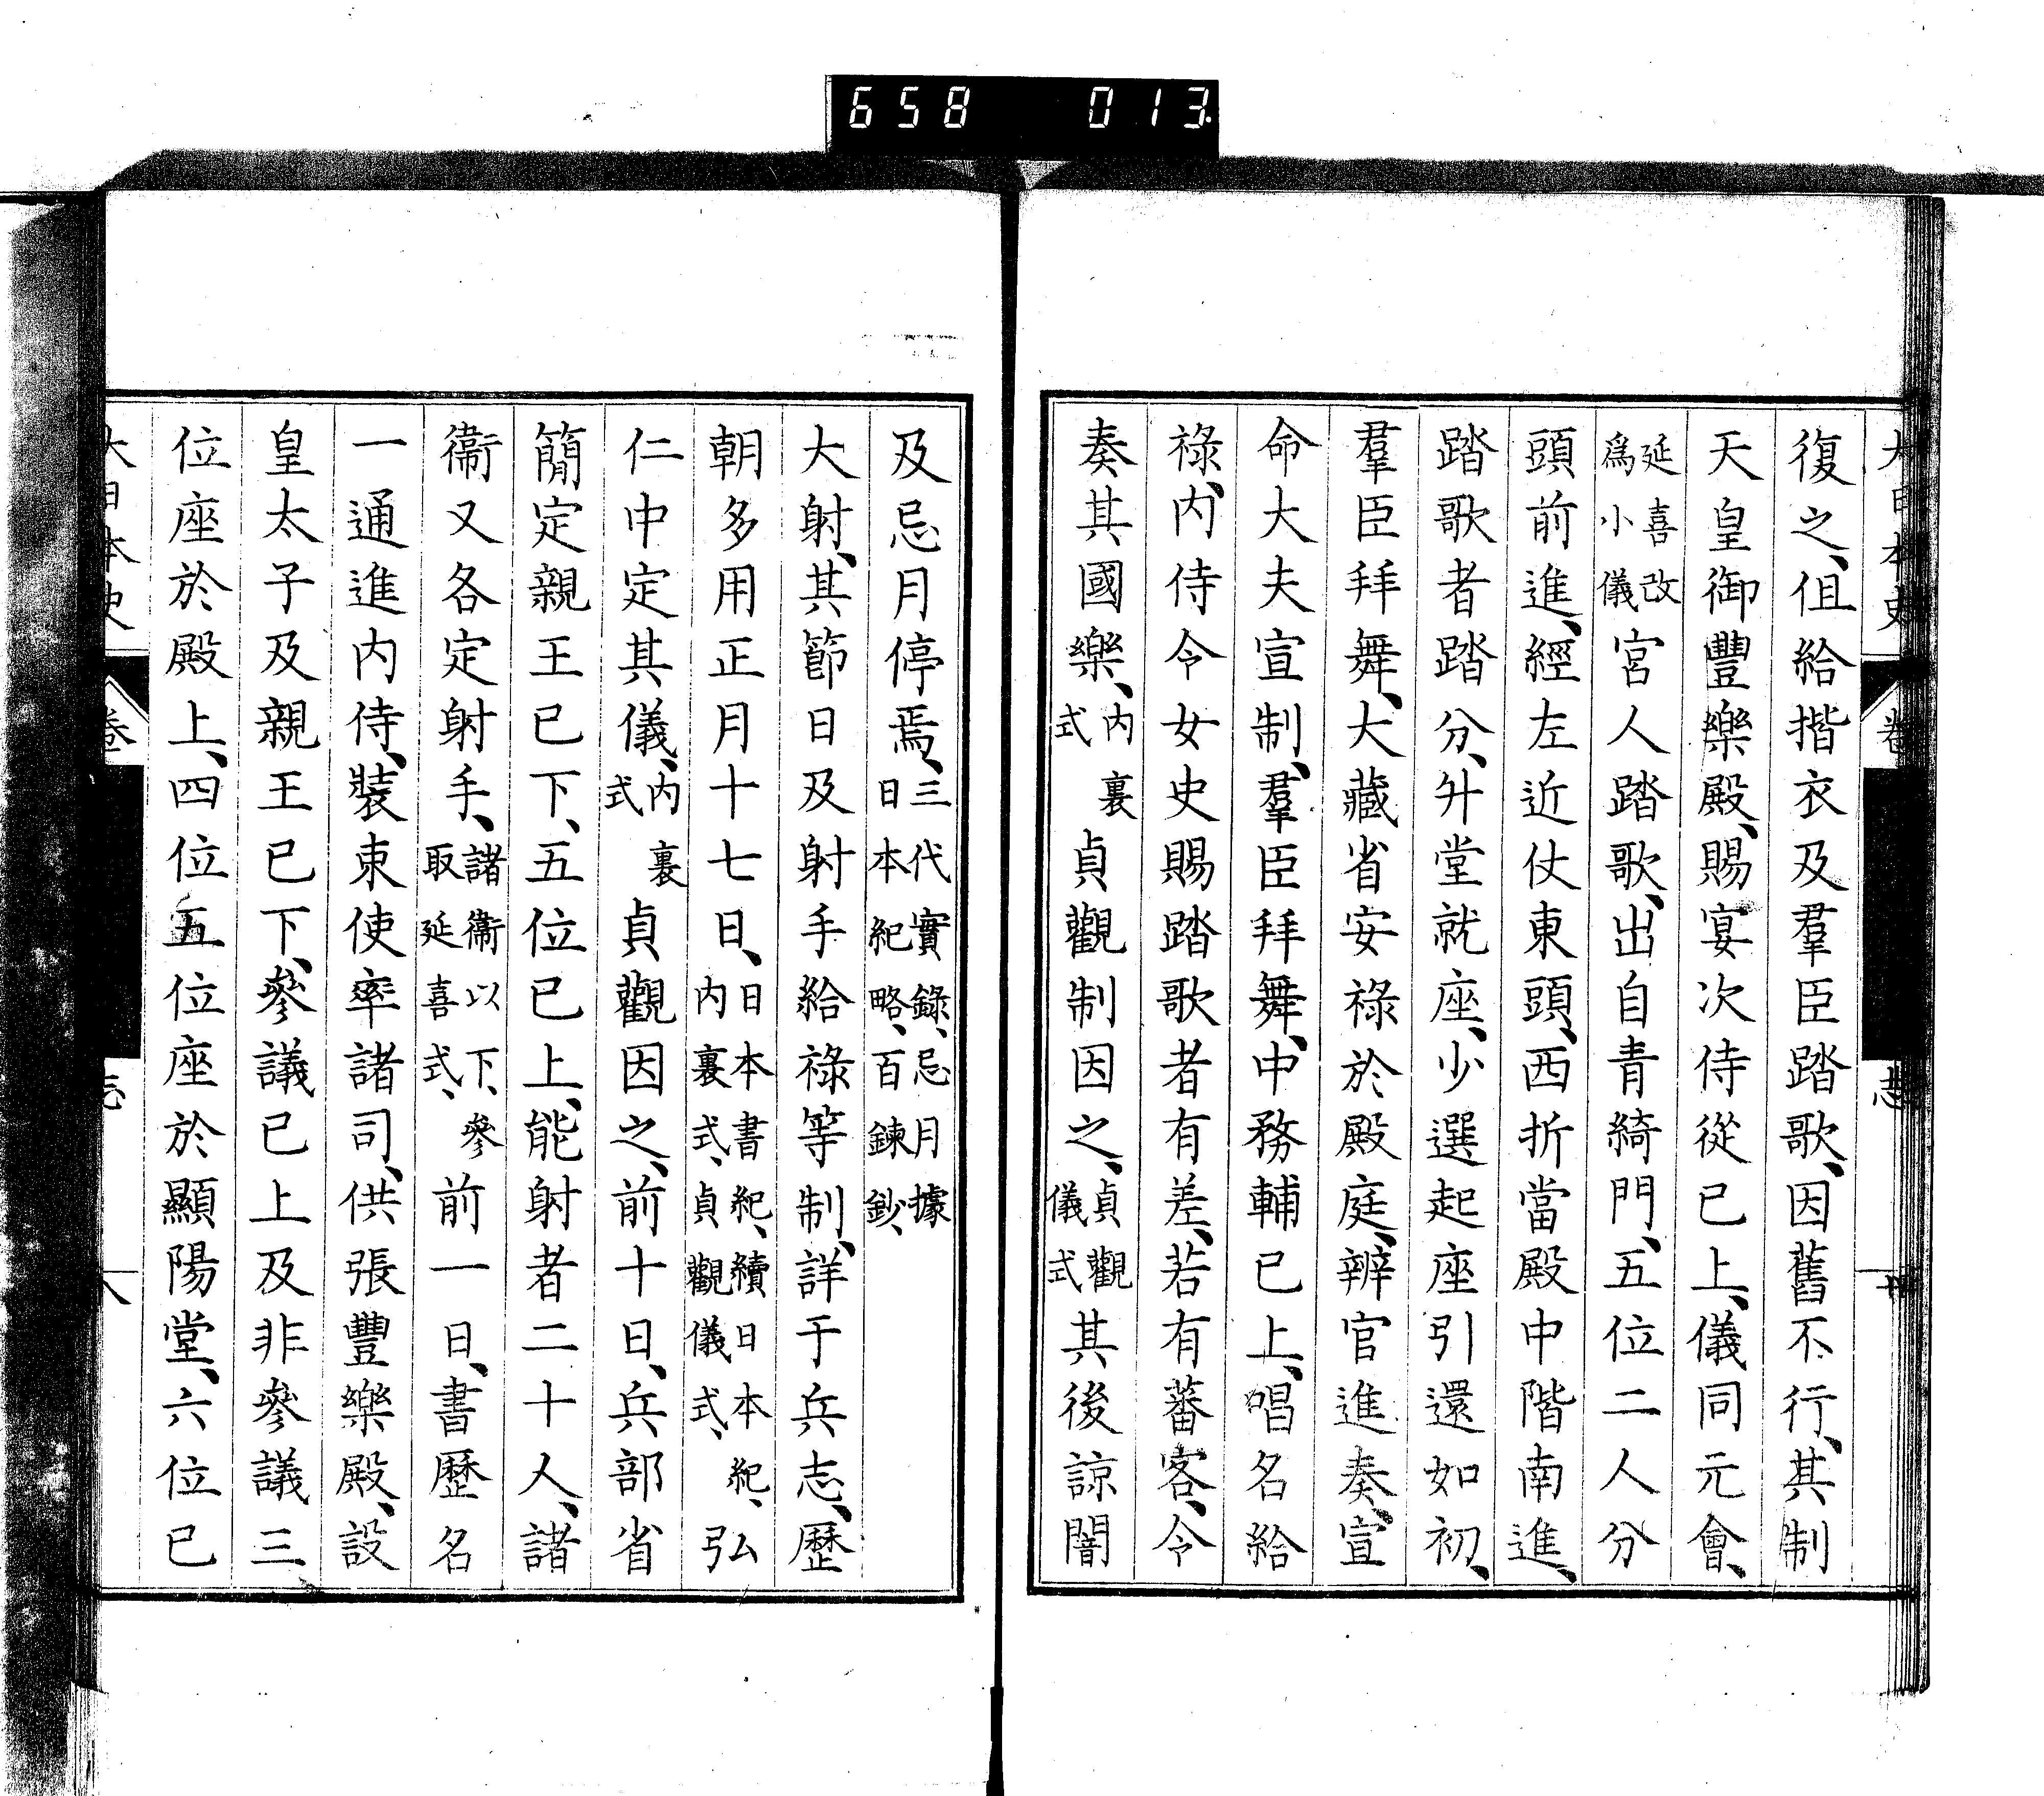 658 013
大日本史 卷 志
復之、但給揩衣及羣臣踏歌、因舊不行、其制
天皇御豐樂殿、賜宴次侍從已上、儀同元會、
延喜改爲小儀宮人踏歌、出自青綺門、五位二人分
頭前進、經左近仗東頭、西折當殿中階南進、
踏歌者踏分、升堂就座、少選起座引還如初、
羣臣拜舞、大藏省安祿於殿庭、辨官進奏、宣
命大夫宣制、羣臣拜舞、中務輔已上、唱名給
祿、内侍令女史賜踏歌者有差、若有蕃客、令
奏其國樂、内裏式貞觀制因之、貞觀儀式其後諒闇
及忌月停焉、三代實錄、忌月據日本紀略、百鍊鈔、
大射、其節日及射手給祿等制、詳于兵志、歷
朝多用正月十七日、日本書紀、續日本紀、内裏式、貞觀儀式、弘
仁中定其儀、内裏式貞觀因之、前十日、兵部省
簡定親王已下、五位已上、能射者二十人、諸
衞又各定射手、諸衞以下、參取延喜式、前一日、書歷名
一通進内侍、裝束使率諸司、供張豐樂殿、設
皇太子及親王已下、參議已上及非參議三
位座於殿上、四位五位座於顯陽堂、六位已
大日本史 卷 志 八